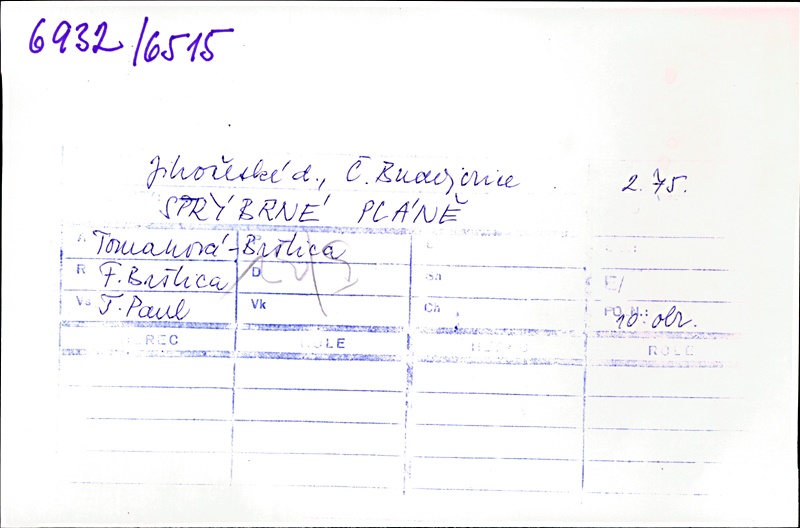 6932/6515
Jihočeské d., Č. Budějovice 2.75.
STŘÍBRNÉ PLÁNĚ
A Tomanová-Brštica
R F. Brštica D Sh
Vs J. Paul Vk Ch PO N.: 10 obr.
HEREC ROLE HEREC ROLE